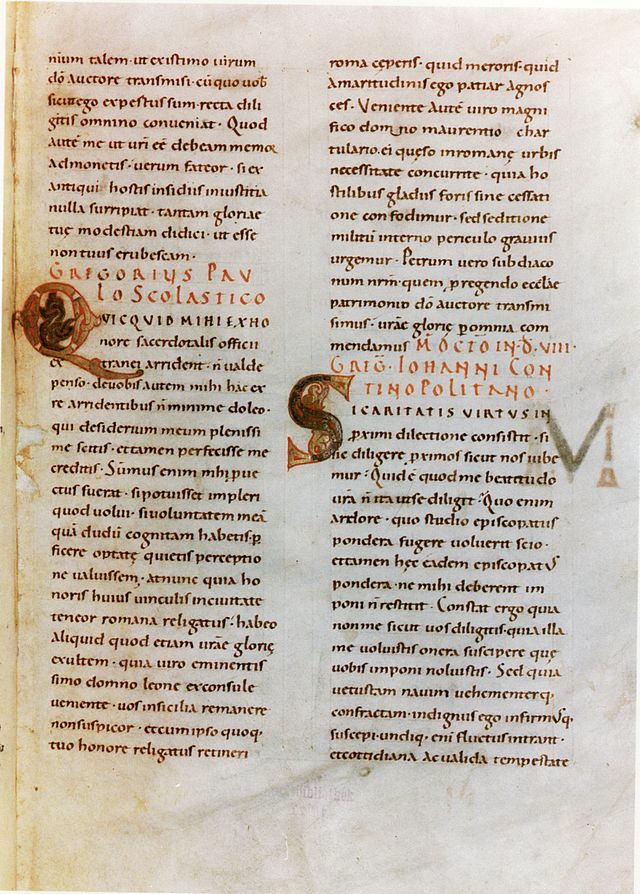 nium talem · ut existimo virum
dō auctore transmisi · cū quo vob̄
sicut ego expertus sum · recta dili
gitis omnino conveniat · Quod
autē me ut urī eē debeam memor
admonetis · verum fateor · si ex
antiqui hostis insidiis iniustitia
nulla surripiat · tantam gloriae
tuę modestiam didici · ut esse
non tuus erubescam ·
GREGORIUS PAU
LO SCOLASTICO
QUICQUID MIHI EX HO
nore sacerdotalis officii
extranei arrident · n̄ valde
penso · de vobis autem mihi hac ex
re arridentibus n̄ minime doleo ·
qui desiderium meum plenissi
me scitis · et tamen perfecisse me
creditis · Summus enim mihi pve
ctus fuerat · si potuisset impleri
quod volui · si voluntatem meā
quā dudū cognitam habetis · p
ficere optatę quietis perceptio
ne valuissem · at nunc quia ho
noris huius vinculis incivitate
teneor romana religatus · habeo
aliquid quod etiam uræ glorię
exultem · quia viro eminentis
simo domno leone exconsule
veniente · vos in sicilia remanere
non suspicor · et cum ipso quoq·
tuo honore religatus retineri
roma cęperis · quid meroris · quid
amaritudinis ego patiar agnos
ces · Veniente autē viro magni
fico domno maurentio char
tulario · ei quęso in romanę urbis
necessitate concurrite · quia ho
stilibus gladiis foris sine cessati
one confodimur · sed seditione
militū interno periculo gravius
urgemur · Petrum vero subdiaco
num nrm̄ quem p regendo eccłae
patrimonio dō auctore transmi
simus · uræ glorię p omnia com
mendamus M̄ OCTO IN·D· VIII·
GRIG̅ · IOHANNI CON
TINOPOLITANO ·
SI CARITATIS VIRTUS IN
pximi dilectione consistit · si
sic diligere pximos sicut nos iube
mur · Quid ē quod me beatitudo
ura n̄ ita ut se diligit · Quo enim
ardore · quo studio episcopatus
pondera fugere volueritis scio ·
et tamen hęc eadem episcopatus
pondera · ne mihi deberent im
poni n̄ restitit · Constat ergo quia
non me sicut vos diligitis · quia illa
me voluistis onera suscipere quę
vobis imponi noluistis · Sed quia
vetustam navim vehementerq·
confractam · indignus ego infirmusq·
suscepi · undiq· enī fluctus intrant ·
et cottidiana ac valida tempestate